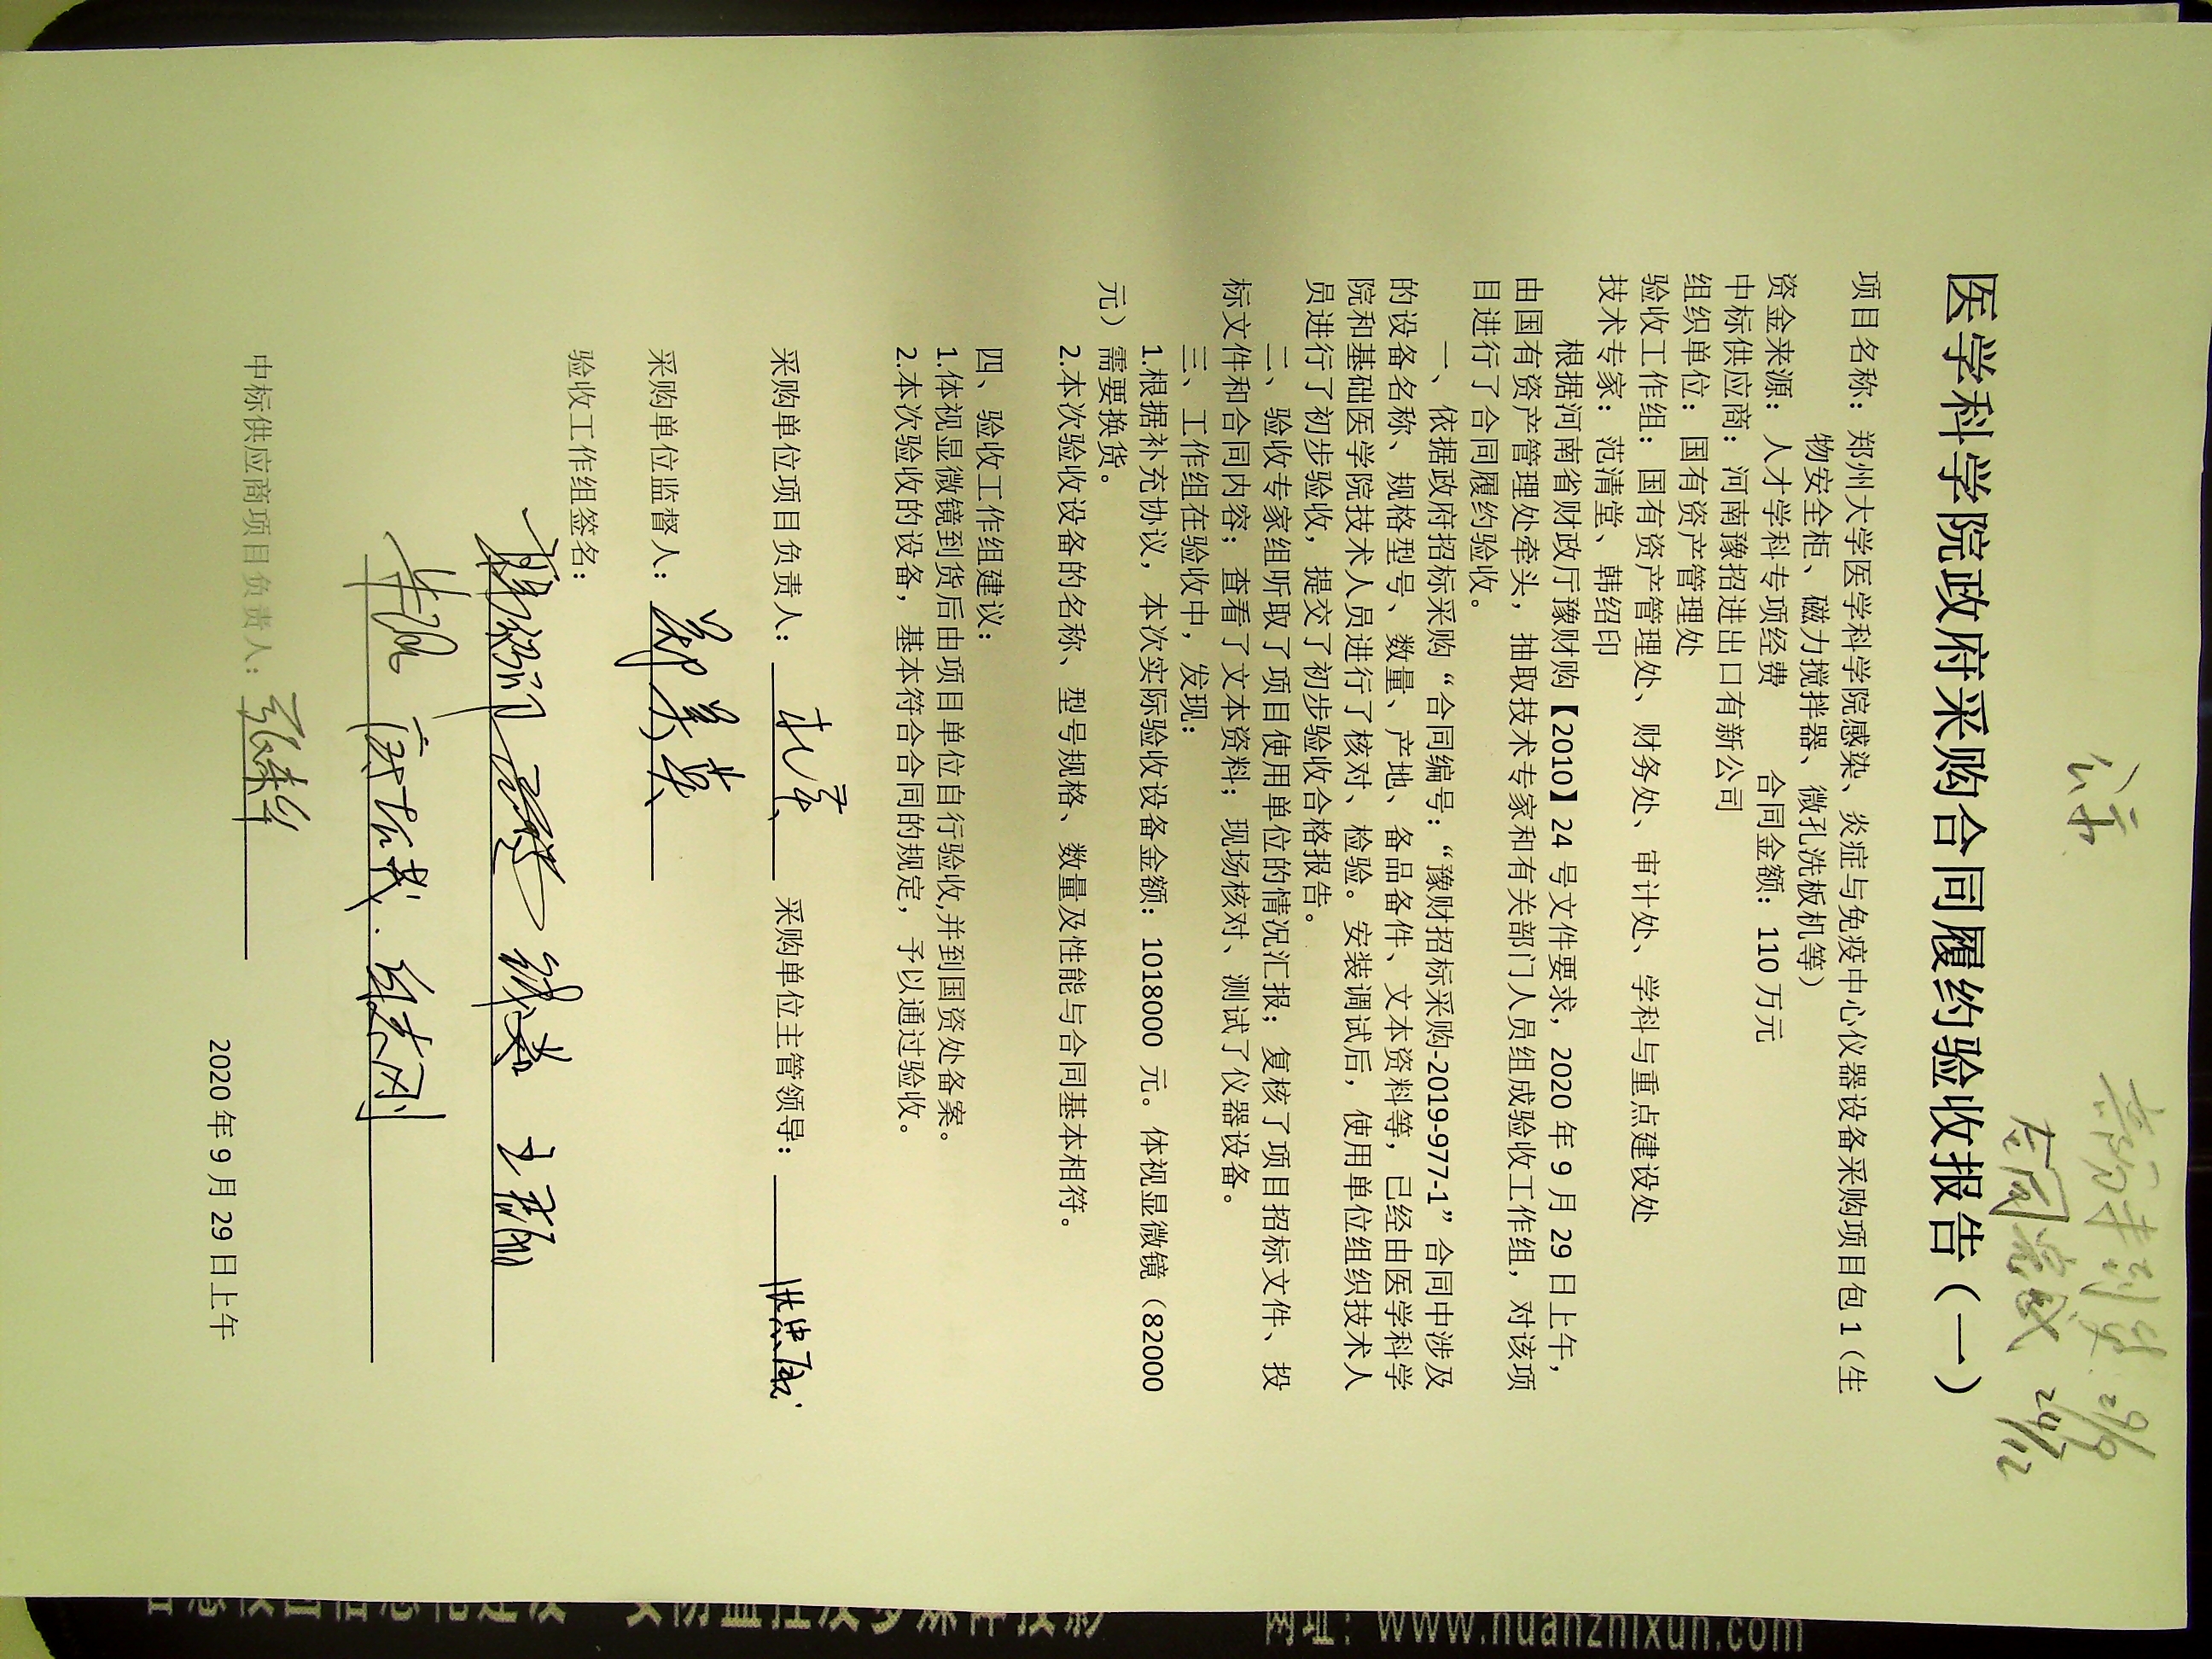 公示
医学科学院政府采购合同履约验收报告（一）
项目名称：郑州大学医学科学院感染、炎症与免疫中心仪器设备采购项目包 1（生
物安全柜、磁力搅拌器、微孔洗板机等）
资金来源：人才学科专项经费 合同金额：110 万元
中标供应商：河南豫招进出口有新公司
组织单位：国有资产管理处
验收工作组：国有资产管理处、财务处、审计处、学科与重点建设处
技术专家：范清堂、韩绍印
根据河南省财政厅豫财购【2010】24 号文件要求，2020 年 9 月 29 日上午，
由国有资产管理处牵头，抽取技术专家和有关部门人员组成验收工作组，对该项
目进行了合同履约验收。
一、依据政府招标采购“合同编号：“豫财招标采购-2019-977-1” 合同中涉及
的设备名称、规格型号、数量、产地、备品备件、文本资料等，已经由医学科学
院和基础医学院技术人员进行了核对、检验。安装调试后，使用单位组织技术人
员进行了初步验收，提交了初步验收合格报告。
二、验收专家组听取了项目使用单位的情况汇报；复核了项目招标文件、投
标文件和合同内容；查看了文本资料；现场核对、测试了仪器设备。
三、工作组在验收中，发现：
1.根据补充协议，本次实际验收设备金额：1018000 元。体视显微镜（82000
元）需要换货。
2.本次验收设备的名称、型号规格、数量及性能与合同基本相符。
四、验收工作组建议：
1.体视显微镜到货后由项目单位自行验收,并到国资处备案。
2.本次验收的设备，基本符合合同的规定，予以通过验收。
采购单位项目负责人： 采购单位主管领导：
采购单位监督人：
验收工作组签名：
中标供应商项目负责人：
2020 年 9 月 29 日上午
网址：www.huanzhixun.com